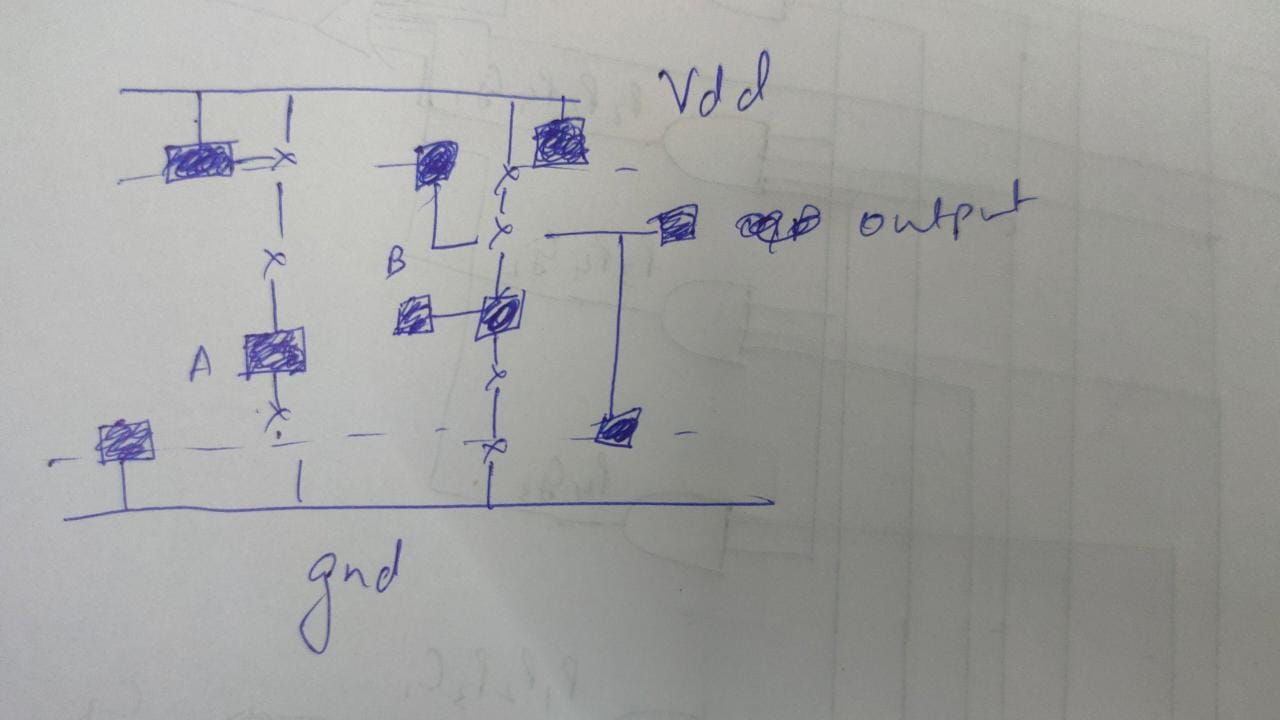 Vdd
output
B
A
gnd